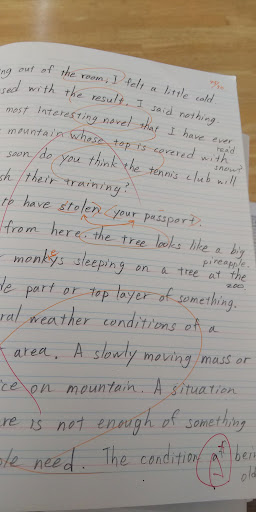 ng out of the room, I felt a little cold
sed with the result, I said nothing.
most interesting novel that I have ever read
mountain whose top is covered with snow?
soon do you think the tennis club will
sh their training?
to have stolen (your passport).
from here, the tree looks like a big pineapple.
monkeys sleeping on a tree at the zoo
de part or top layer of something.
ral weather conditions of a
area. A slowly moving mass or
ice on mountain. A situation
re is not enough of something
ple need. The condition of bein
old